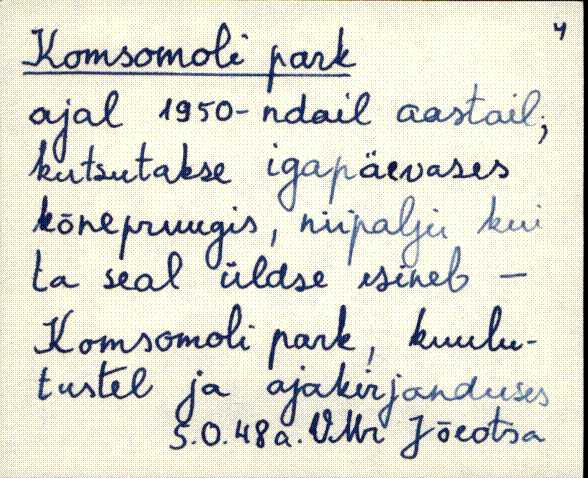 4
Komsomoli park
ajal 1950-ndail aastail;
kutsutakse igapäevases
kõnepruugis, niipalju kui
ta seal üldse esineb –
Komsomoli park, kuulu-
tustel ja ajakirjanduses
S.O. 48a. VMr Jõeotsa